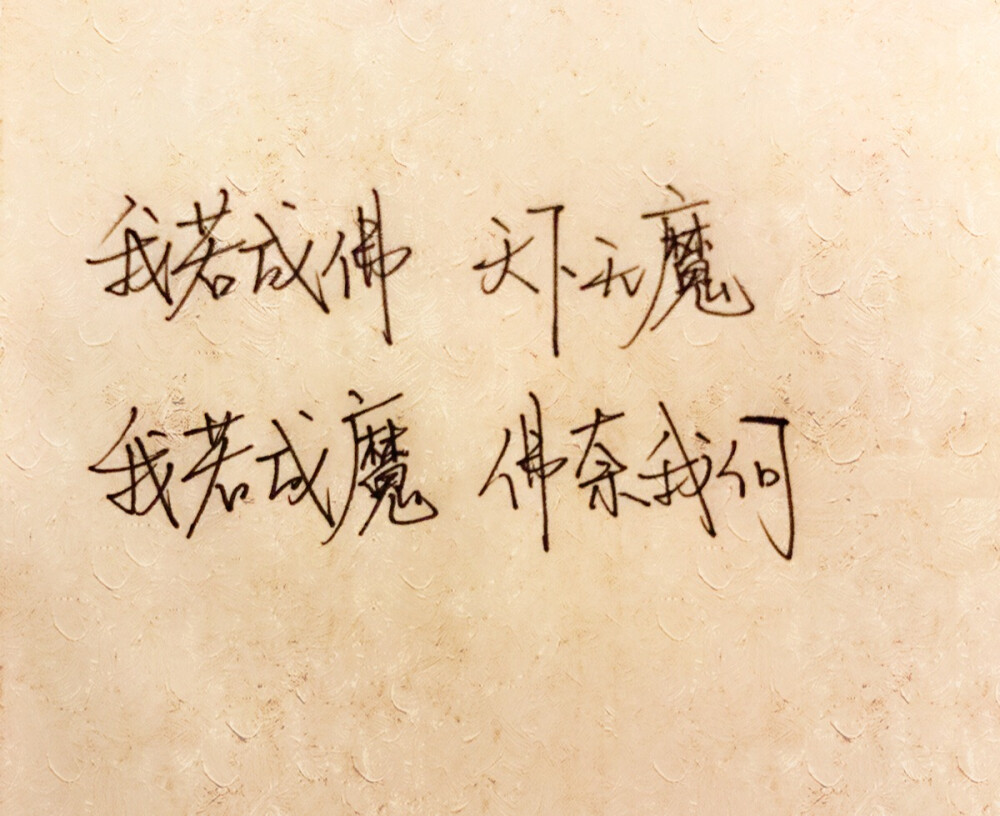 我若成佛 天下无魔
我若成魔 佛奈我何